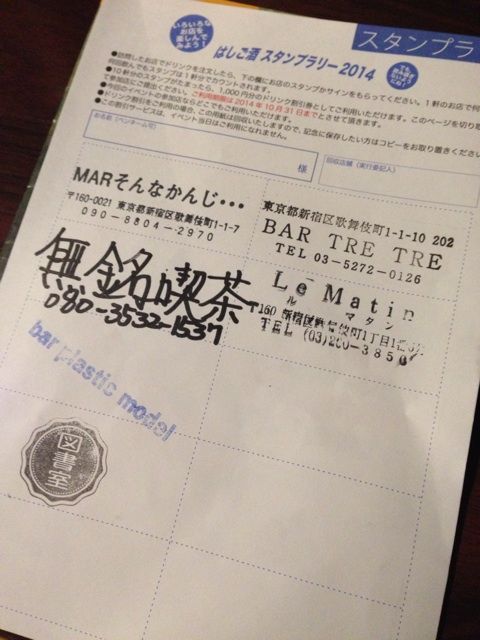 いろいろな
お店を
楽しんで
みよう!
スタンプラ
はしご酒 スタンプラリー2014
でも
飲み過ぎ
ないように
ね!
●訪問したお店でドリンクを注文したら、下の欄にお店のスタンプかサインをもらってください。1軒のお店で何
何回飲んでもスタンプは1軒分でカウントされます。
●10軒分のスタンプがたまったら、1,000円分のドリンク割引券としてご利用いただけます。このページを切り取
て参加店にご提出ください。ご利用期限は2014年10月31日までとさせて頂きます。
●今回のイベントの参加店ならどこでもご利用いただけます。
●ドリンク割引をご利用の場合、この用紙は回収いたしますので、記念に保存したい方はコピーをお取り置きくださ
●この割引サービスは、イベント当日はご利用になれません。
お名前(ペンネーム可)
様
回収店舗(実行委記入)
MARそんなかんじ・・・
〒160-0021 東京都新宿区歌舞伎町1-1-7
090-8804-2970
東京都新宿区歌舞伎町1-1-10 202
BAR TRE TRE
TEL 03-5272-0126
無銘喫茶
080-3532-1537
Le Matin
ル マタン
TEL (03)200-385
bar plastic model
図書室